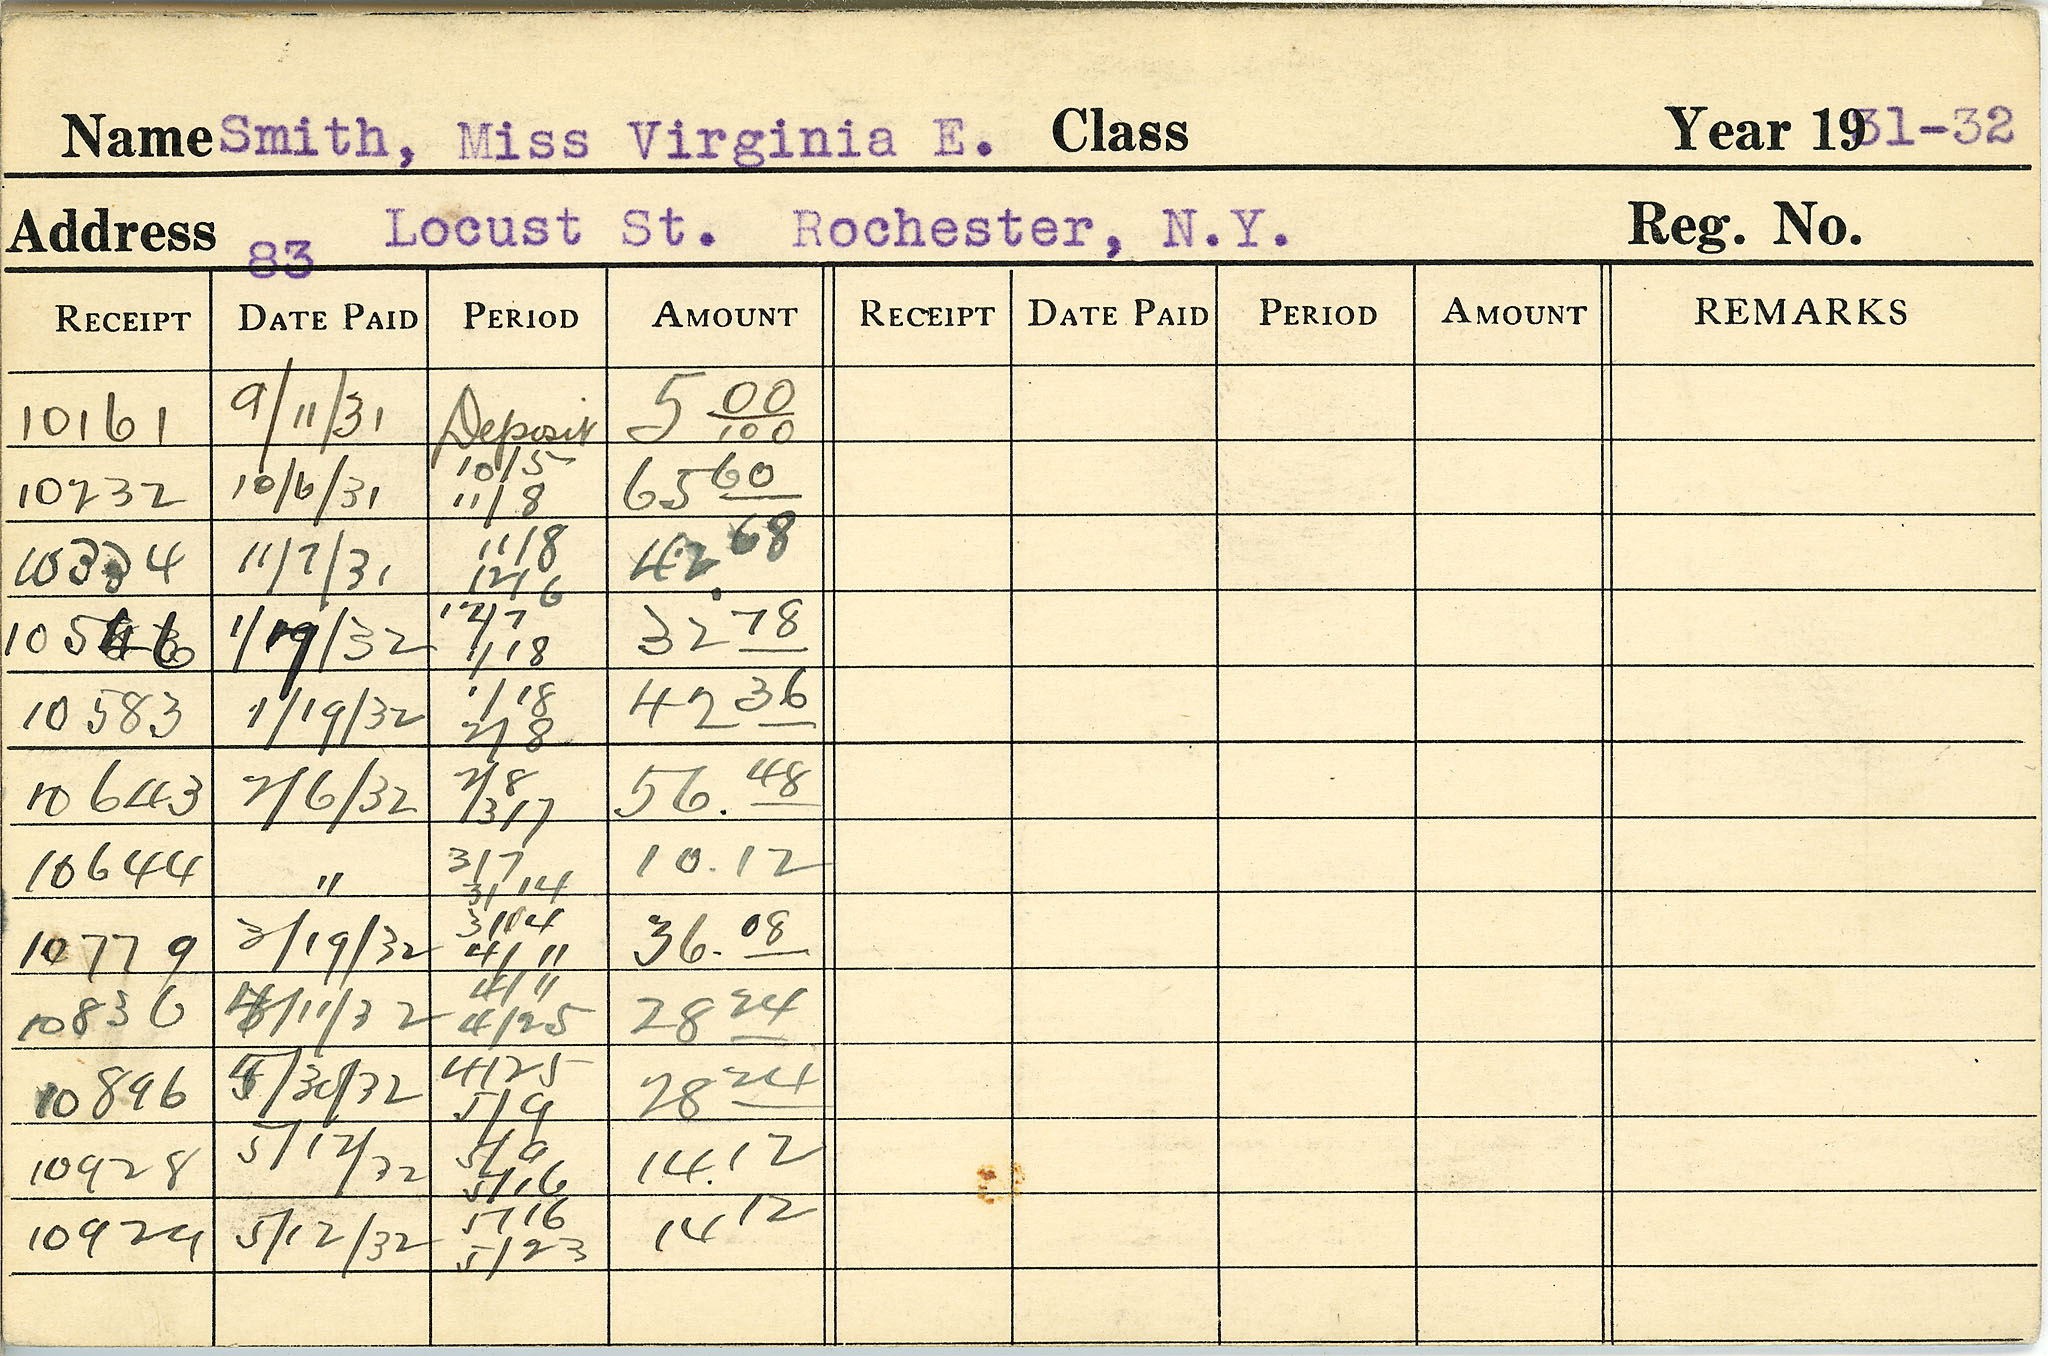 Name Smith, Miss Virginia E. Class Year 1931-32
Address 83 Locust St. Rochester, N.Y. Reg. No.
RECEIPT DATE PAID PERIOD AMOUNT RECEIPT DATE PAID PERIOD AMOUNT REMARKS
10161 9/11/31 Deposit 5 00/100
10232 10/6/31 10/5 11/8 65 60
10334 11/7/31 11/8 12/6 42.68
10546 1/19/32 12/7 1/18 32 78
10583 1/19/32 1/18 2/8 42 36
10643 2/6/32 2/8 3/7 56.48
10644 " 3/7 3/14 10.12
10779 3/19/32 3/14 4/11 36.08
10836 4/11/32 4/11 4/25 28 24
10896 /30/32 4/25 5/9 28 24
10928 5/12/32 5/9 5/16 14.12
10929 5/12/32 5/16 5/23 14 12